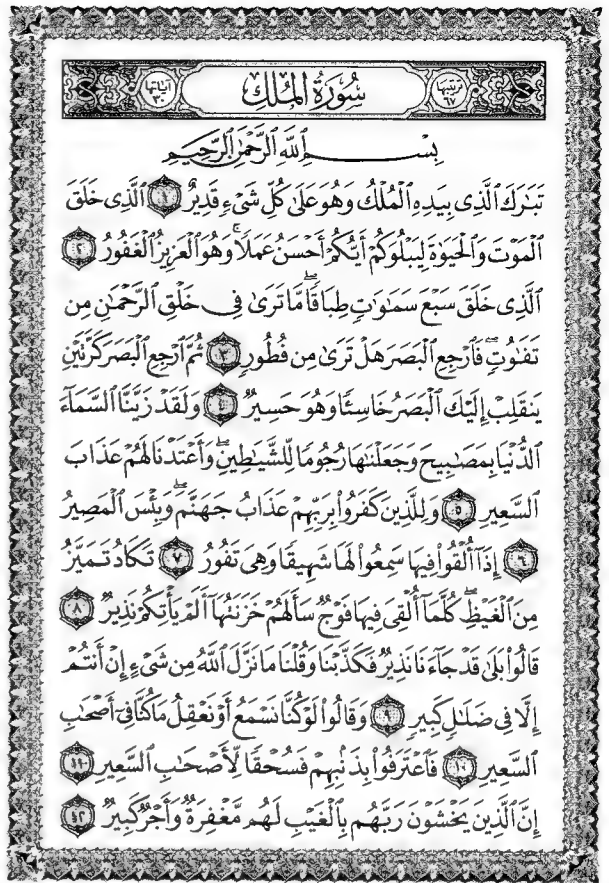 تَرتيبهَا ٦٧ سُورَةُ المُلْكِ آيَاتُهَا ٣٠
بِسْمِ ٱللَّهِ ٱلرَّحْمَٰنِ ٱلرَّحِيمِ
تَبَٰرَكَ ٱلَّذِى بِيَدِهِ ٱلْمُلْكُ وَهُوَ عَلَىٰ كُلِّ شَىْءٍ قَدِيرٌ ۝ ٱلَّذِى خَلَقَ
ٱلْمَوْتَ وَٱلْحَيَوٰةَ لِيَبْلُوَكُمْ أَيُّكُمْ أَحْسَنُ عَمَلًا ۚ وَهُوَ ٱلْعَزِيزُ ٱلْغَفُورُ ٢
ٱلَّذِى خَلَقَ سَبْعَ سَمَٰوَٰتٍ طِبَاقًا ۖ مَّا تَرَىٰ فِى خَلْقِ ٱلرَّحْمَٰنِ مِن
تَفَٰوُتٍ ۖ فَٱرْجِعِ ٱلْبَصَرَ هَلْ تَرَىٰ مِن فُطُورٍ ٣ ثُمَّ ٱرْجِعِ ٱلْبَصَرَ كَرَّتَيْنِ
يَنقَلِبْ إِلَيْكَ ٱلْبَصَرُ خَاسِئًا وَهُوَ حَسِيرٌ ٤ وَلَقَدْ زَيَّنَّا ٱلسَّمَآءَ
ٱلدُّنْيَا بِمَصَٰبِيحَ وَجَعَلْنَٰهَا رُجُومًا لِّلشَّيَٰطِينِ ۖ وَأَعْتَدْنَا لَهُمْ عَذَابَ
ٱلسَّعِيرِ ٥ وَلِلَّذِينَ كَفَرُوا۟ بِرَبِّهِمْ عَذَابُ جَهَنَّمَ ۖ وَبِئْسَ ٱلْمَصِيرُ
٦ إِذَآ أُلْقُوا۟ فِيهَا سَمِعُوا۟ لَهَا شَهِيقًا وَهِىَ تَفُورُ ٧ تَكَادُ تَمَيَّزُ
مِنَ ٱلْغَيْظِ ۖ كُلَّمَآ أُلْقِىَ فِيهَا فَوْجٌ سَأَلَهُمْ خَزَنَتُهَآ أَلَمْ يَأْتِكُمْ نَذِيرٌ ٨
قَالُوا۟ بَلَىٰ قَدْ جَآءَنَا نَذِيرٌ فَكَذَّبْنَا وَقُلْنَا مَا نَزَّلَ ٱللَّهُ مِن شَىْءٍ إِنْ أَنتُمْ
إِلَّا فِى ضَلَٰلٍ كَبِيرٍ ٩ وَقَالُوا۟ لَوْ كُنَّا نَسْمَعُ أَوْ نَعْقِلُ مَا كُنَّا فِىٓ أَصْحَٰبِ
ٱلسَّعِيرِ ١٠ فَٱعْتَرَفُوا۟ بِذَنۢبِهِمْ فَسُحْقًا لِّأَصْحَٰبِ ٱلسَّعِيرِ ۝
إِنَّ ٱلَّذِينَ يَخْشَوْنَ رَبَّهُم بِٱلْغَيْبِ لَهُم مَّغْفِرَةٌ وَأَجْرٌ كَبِيرٌ ۝